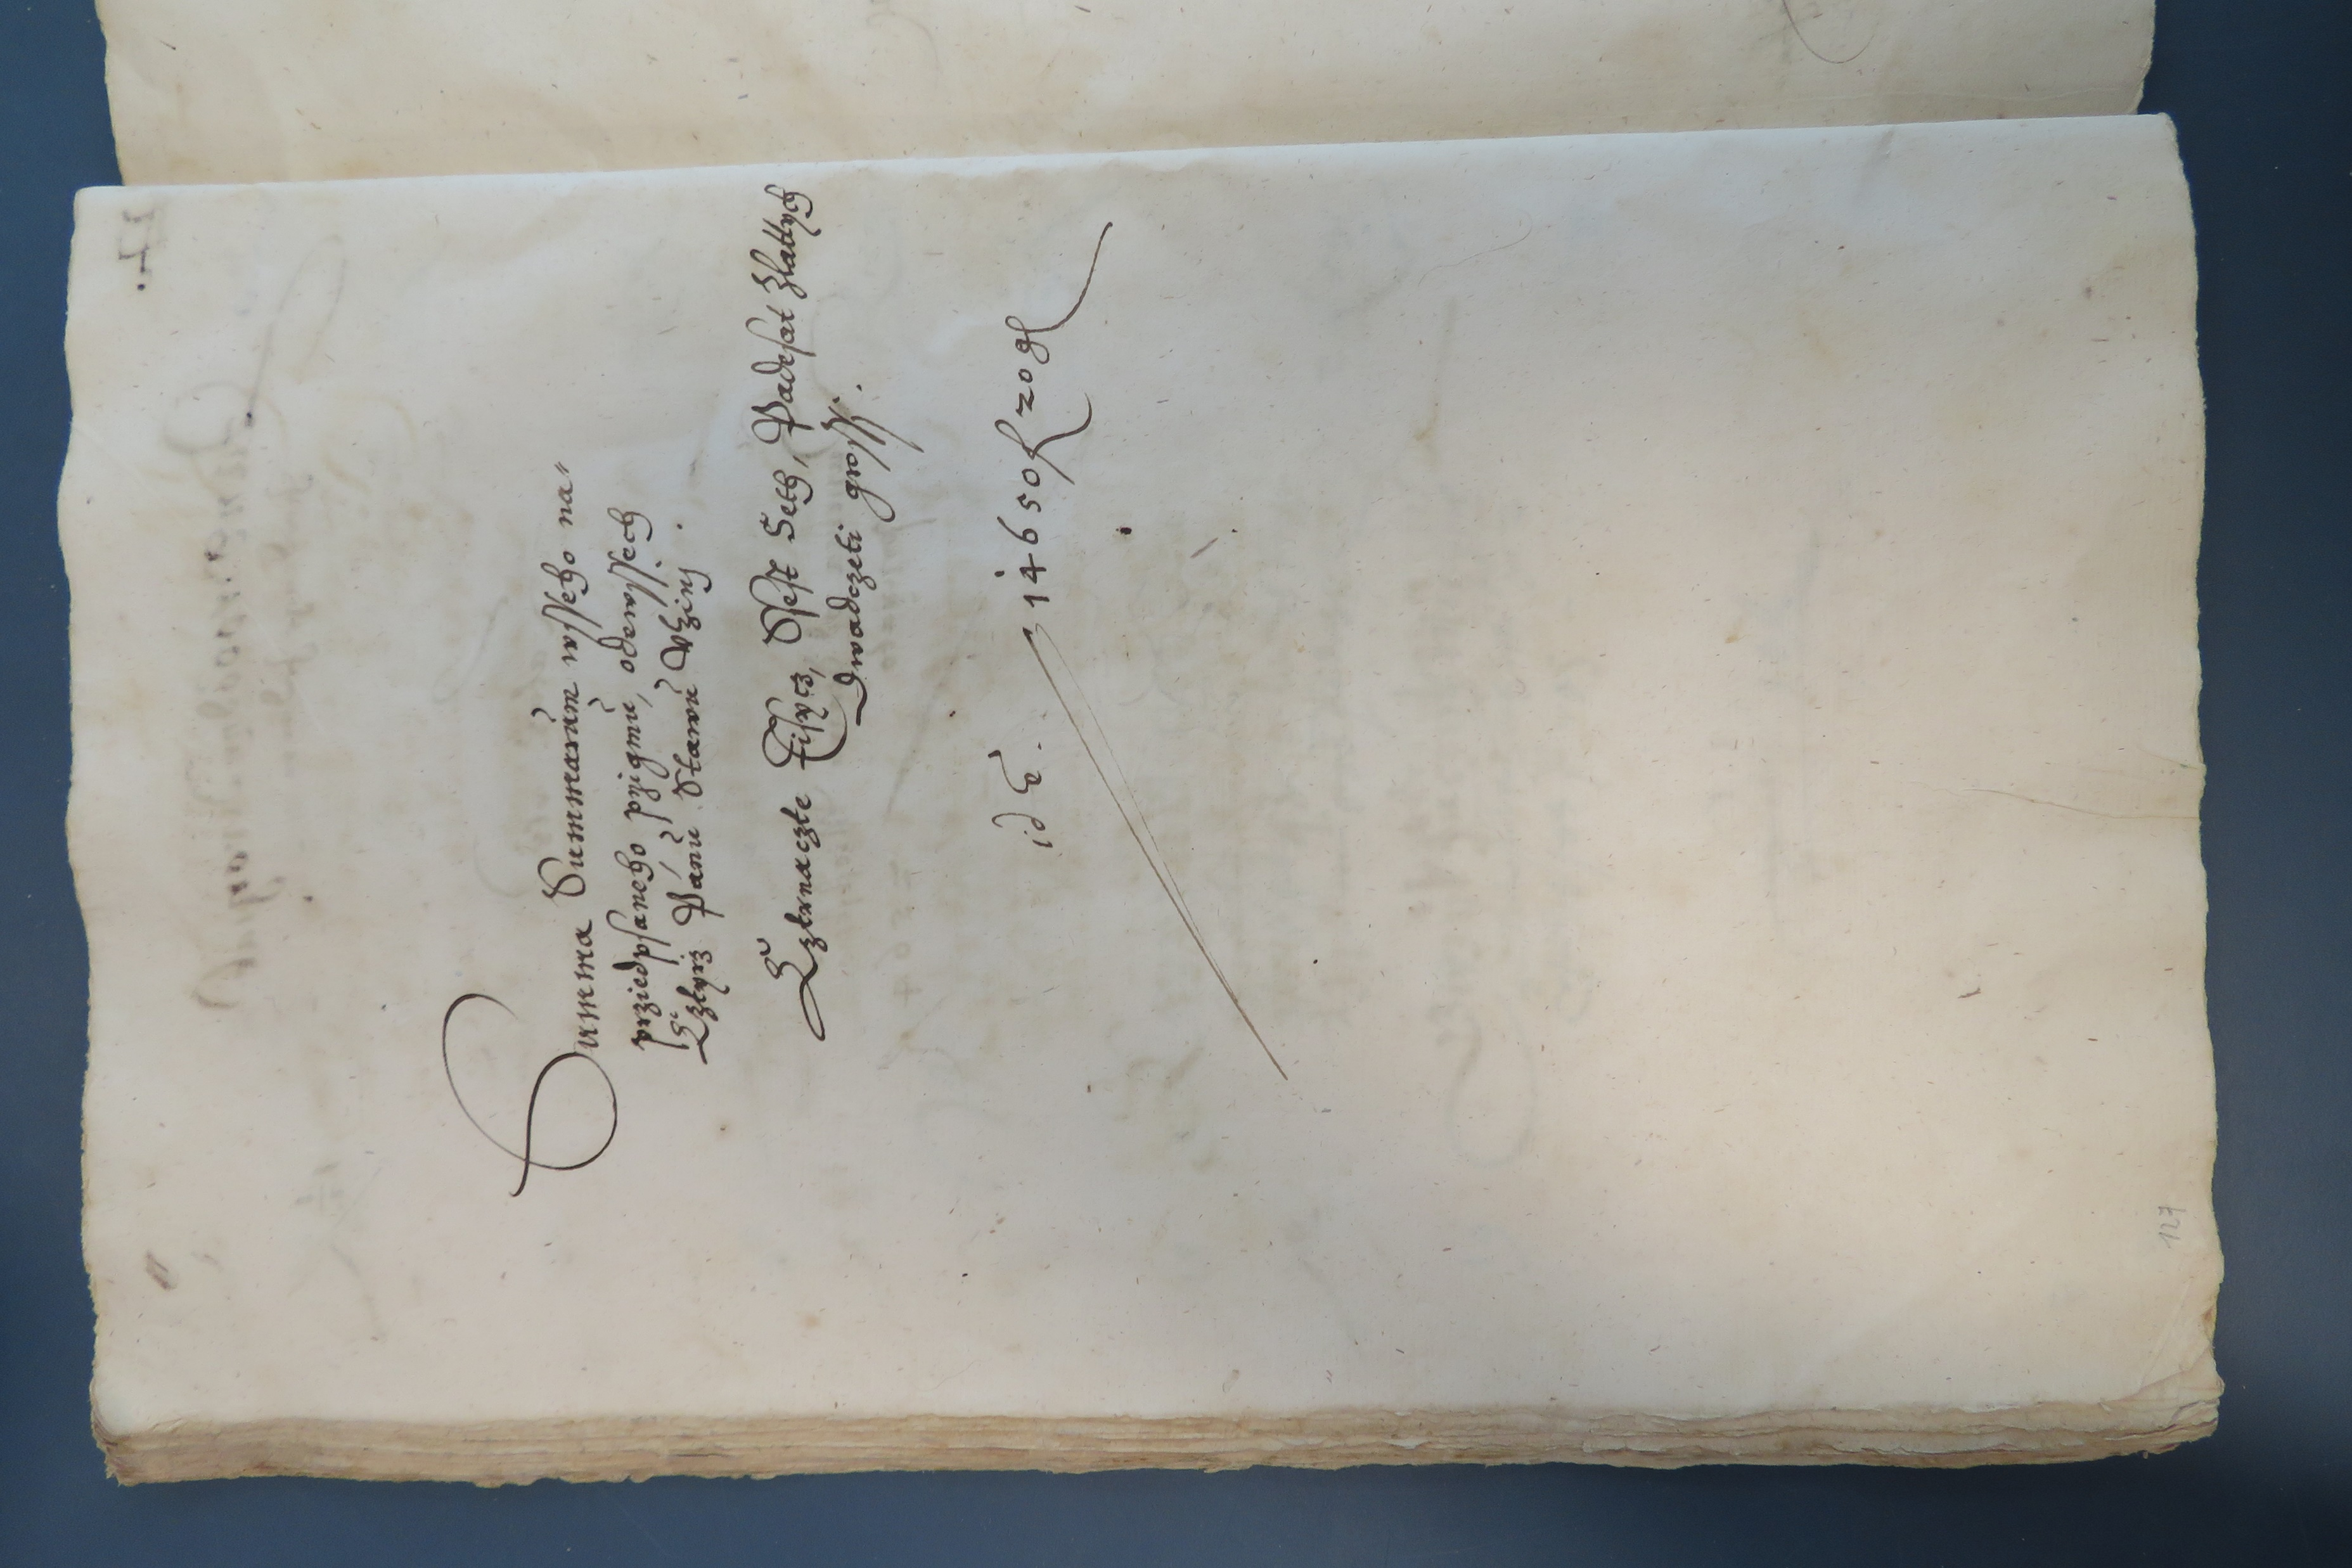 Summa Summarum wsseho na-
prziedpsaneho przigmu, odewssech
Cztyrz Panu Stawu Vczinj.
Cztrnaczte Tisycz, Ssest Seth, Padesat Zlattych
Dwadczeti grossi.
id E. 14650 f 20 gl
127